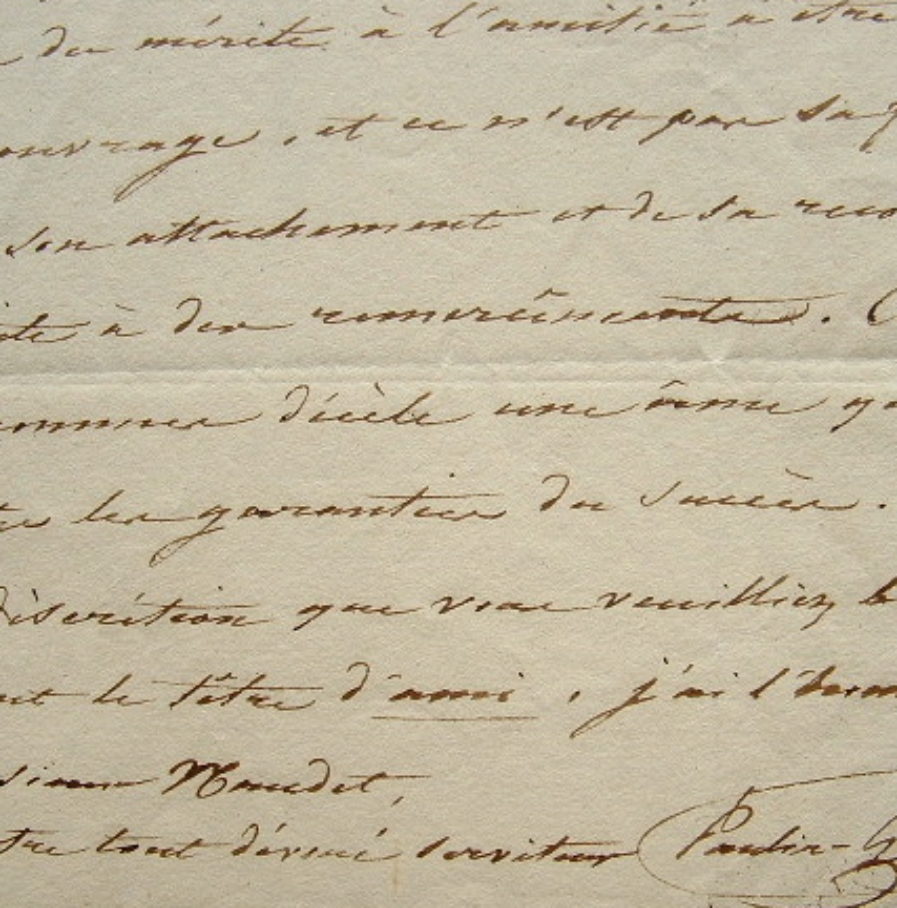 du mérite à l'amitié à être
ouvrage, et ce n'est pas sa
son attachement et de sa reco
à des remercîments.
décèle une âme
les garanties du succès.
discrétion que vous veuilliez
le tître d'ami, j'ai l'honn
Naudet,
tre tout dévoué serviteur Paulin-G